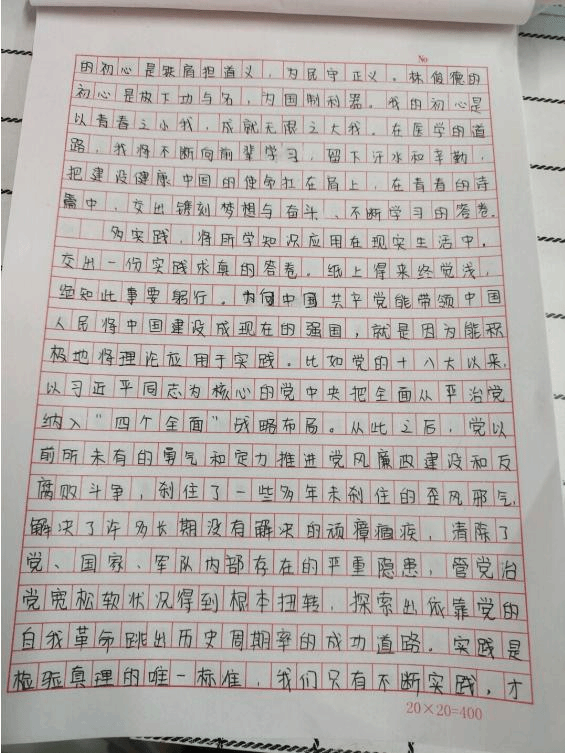 No
的初心是铁肩担道义，为民守正义。林俊德的
初心是放下功与名，为国制利器。我的初心是
以青春之小我，成就无限之大我。在医学的道
路，我将不断向前辈学习，留下汗水和辛勤，
把建设健康中国的使命扛在肩上，在青春的诗
篇中，交出镌刻梦想与奋斗、不断学习的答卷。
多实践，将所学知识应用在现实生活中，
交出一份实践求真的答卷。纸上得来终觉浅，
绝知此事要躬行。为何中国共产党能带领中国
人民将中国建设成现在的强国，就是因为能积
极地将理论应用于实践。比如党的十八大以来，
以习近平同志为核心的党中央把全面从严治党
纳入“四个全面”战略布局。从此之后，党以
前所未有的勇气和定力推进党风廉政建设和反
腐败斗争，刹住了一些多年未刹住的歪风邪气，
解决了许多长期没有解决的顽瘴痼疾，清除了
党、国家、军队内部存在的严重隐患，管党治
党宽松软状况得到根本扭转，探索出依靠党的
自我革命跳出历史周期率的成功道路。实践是
检验真理的唯一标准，我们只有不断实践，才
20×20=400